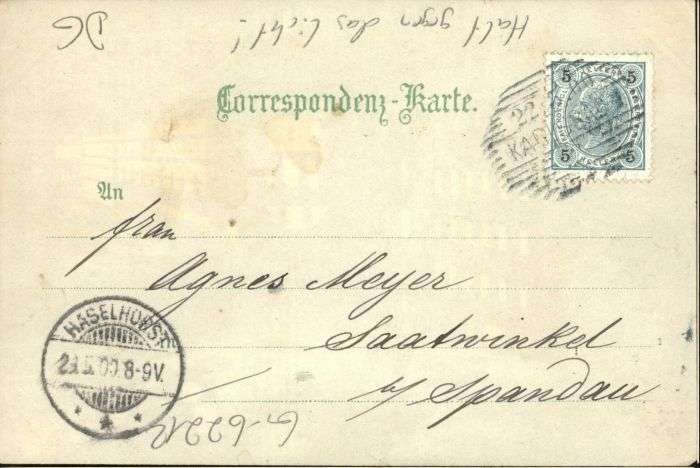 Halt gegen das Licht!
DG
Correspondenz-Karte.
5 5
5 5
22
KAR
An
Frau
Agnes Meyer
Saatwinkel
b/ Spandau
HASELHORST
29.5.00.8-9V.